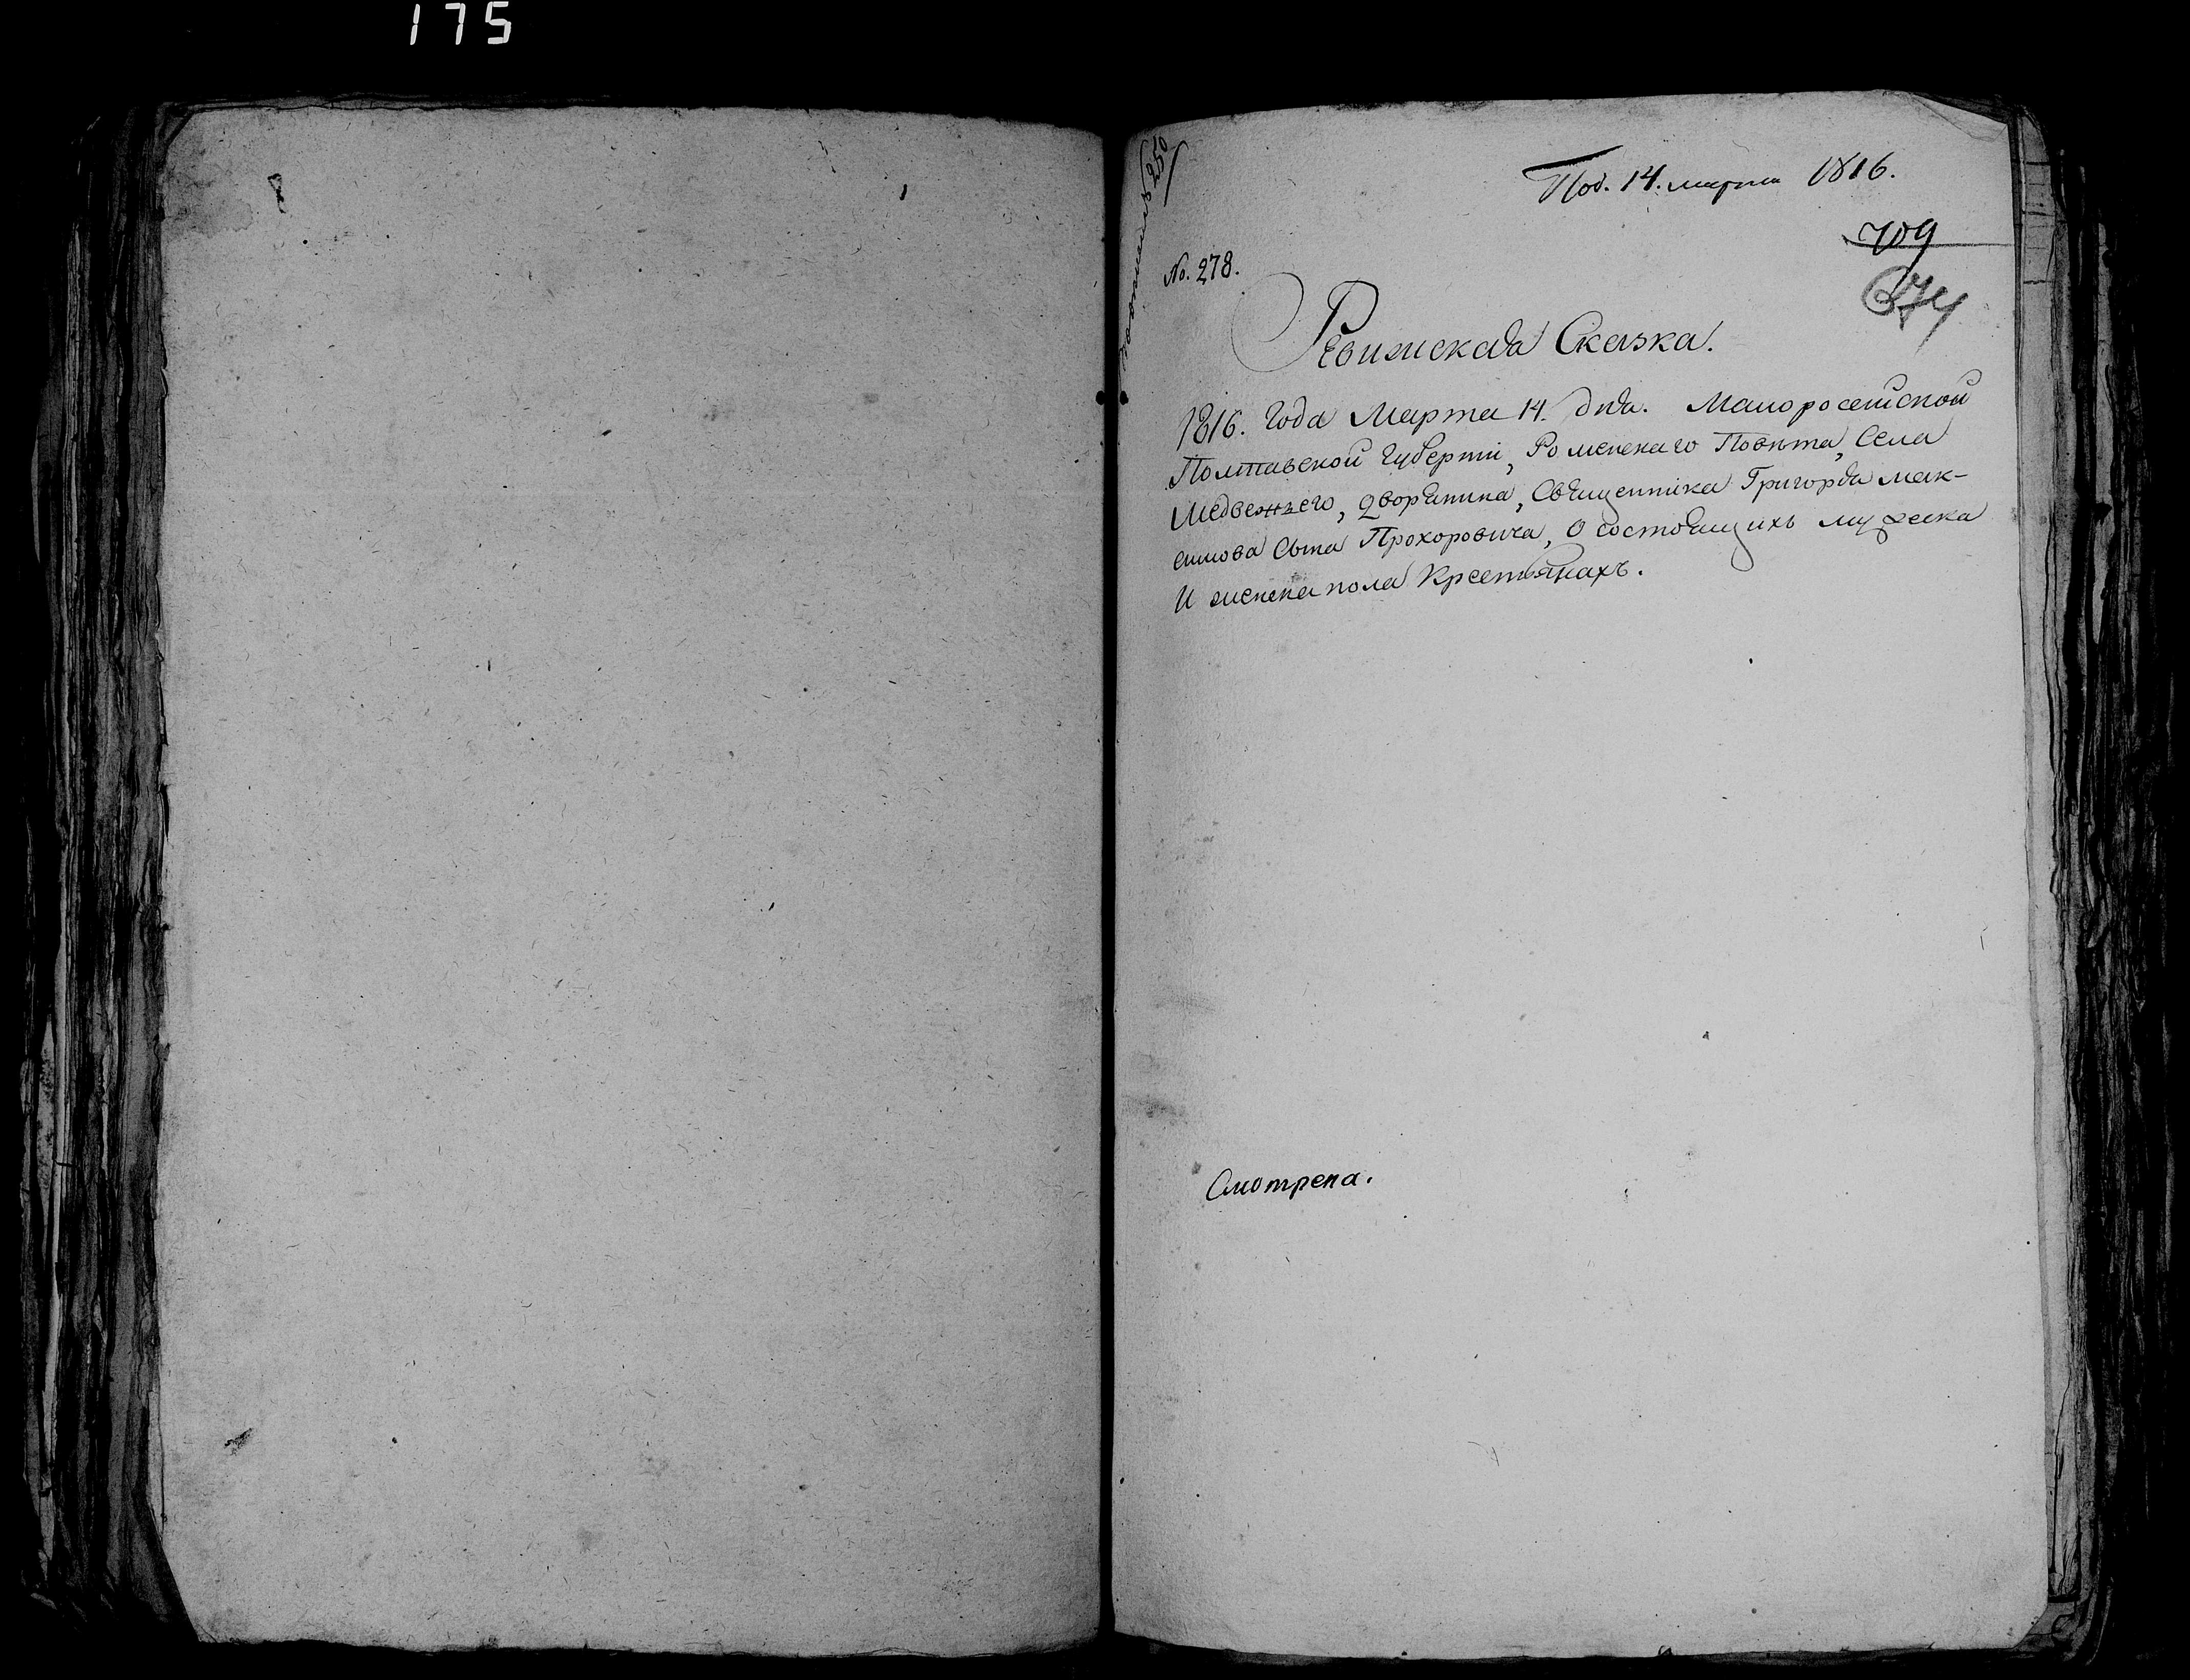 175
250
Под. 14. марта 1816.
709
674
No. 278.
Ревижская Сказка.
1816. Года Марта 14. дня. Малоросейской
Полтавской Губерніи, Роменскаго Повѣта, Села
Медвежъего, дворянина, Священніка Григорія мак-
симова Сына Прохоровича, О состоящихъ мужеска
И женска пола Крестьянахъ.
Смотрена.